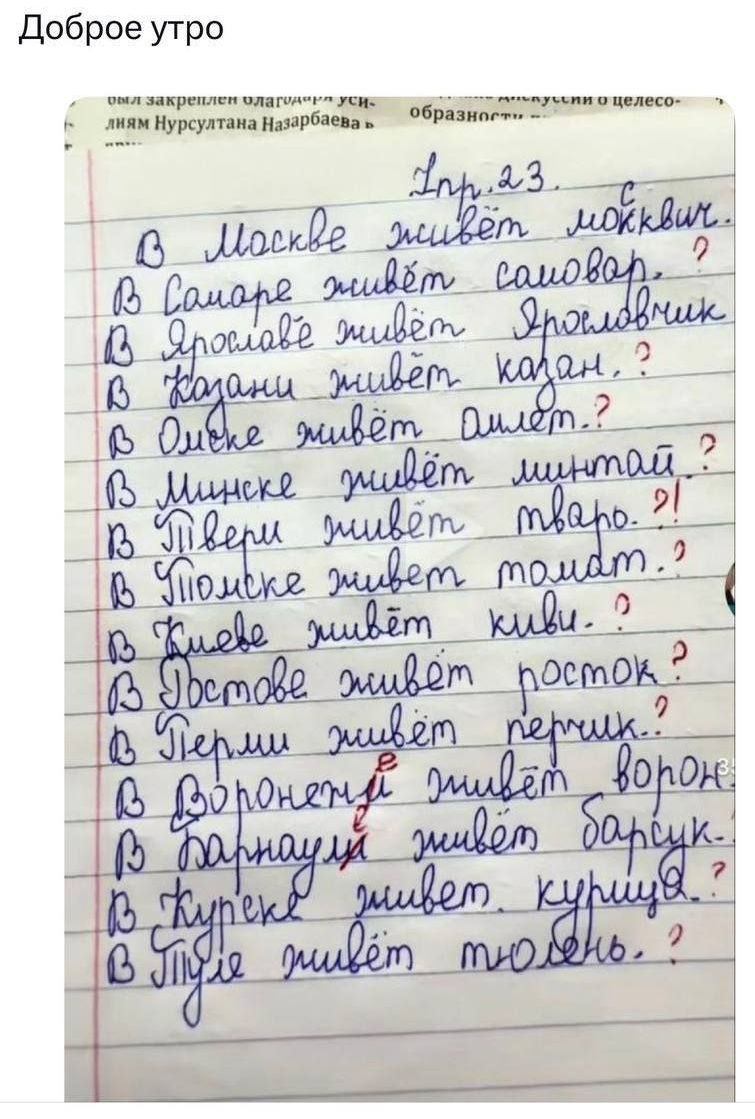 Доброе утро
был закреплен благодаря уси-
лиям Нурсултана Назарбаева в
дискуссии о целесо-
образности
Упр. 23.
с
В Москве живёт москвич.
В Самаре живёт самовар. ?
В Ярославе живёт Ярославчик
В Казани живёт казан. ?
В Омске живёт Омлет. ?
В Минске живёт минтай ?
В Твери живёт тварь. ?!
В Томске живет томат. ?
В Киеве живёт киви. ?
В Ростове живёт росток ?
В Перми живёт перчик. ?
е
В Воронежи живёт ворон.
е
В Барнаули живёт барсук.
В Курске живет курица. ?
В Туле живёт тюлень. ?